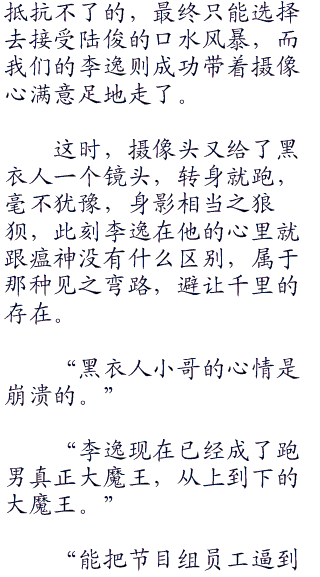 抵抗不了的，最终只能选择
去接受陆俊的口水风暴，而
我们的李逸则成功带着摄像
心满意足地走了。
这时，摄像头又给了黑
衣人一个镜头，转身就跑，
毫不犹豫，身影相当之狼
狈，此刻李逸在他的心里就
跟瘟神没有什么区别，属于
那种见之弯路，避让千里的
存在。
“黑衣人小哥的心情是
崩溃的。”
“李逸现在已经成了跑
男真正大魔王，从上到下的
大魔王。”
“能把节目组员工逼到